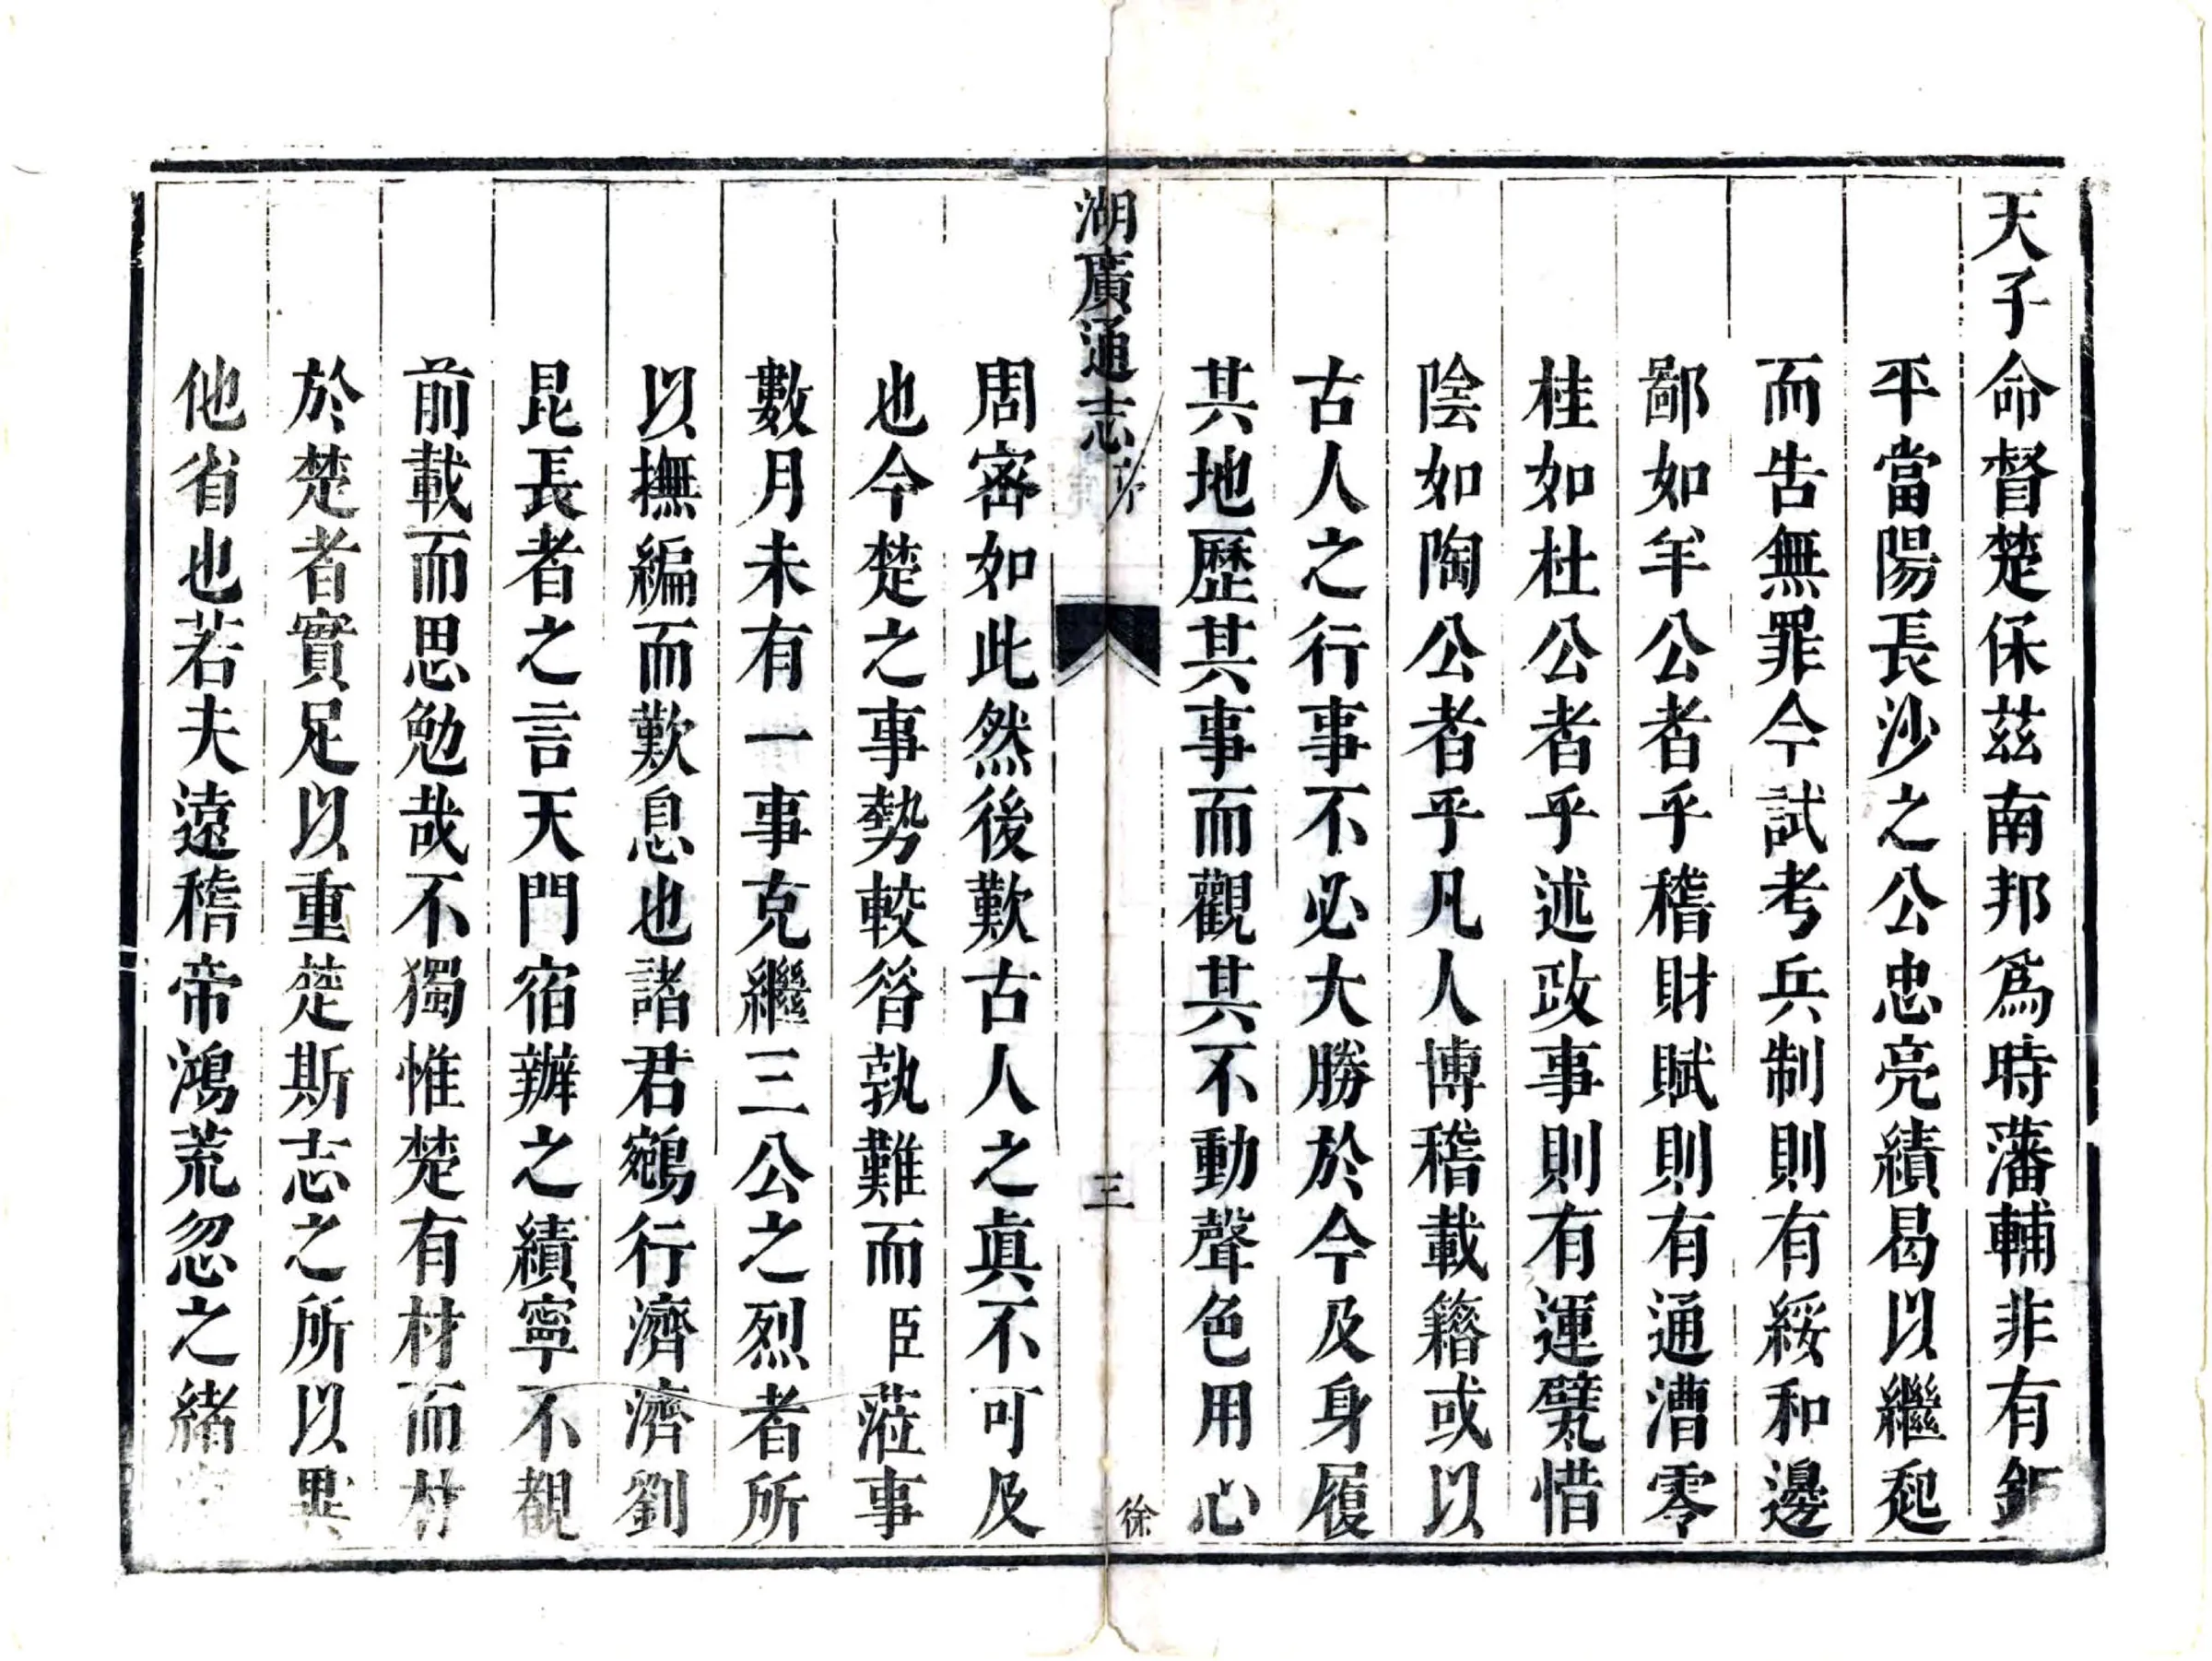 天子命督楚保茲南邦爲時藩輔非有鉅
平當陽長沙之公忠亮績曷以繼起
而告無罪今試考兵制則有綏和邊
鄙如羊公者乎稽財賦則有通漕零
桂如杜公者乎述政事則有運甓惜
陰如陶公者乎凡人博稽載籍或以
古人之行事不必大勝於今及身履
其地歷其事而觀其不動聲色用心
湖廣通志 序 三 徐
周密如此然後歎古人之眞不可及
也今楚之事勢較昝孰難而臣蒞事
數月未有一事克繼三公之烈者所
以撫編而歎息也諸君鵷行濟濟劉
昆長者之言天門宿辦之績寧不覩
前載而思勉哉不獨惟楚有材而材
於楚者實足以重楚斯志之所以異
他省也若夫遠稽帝鴻荒忽之緒